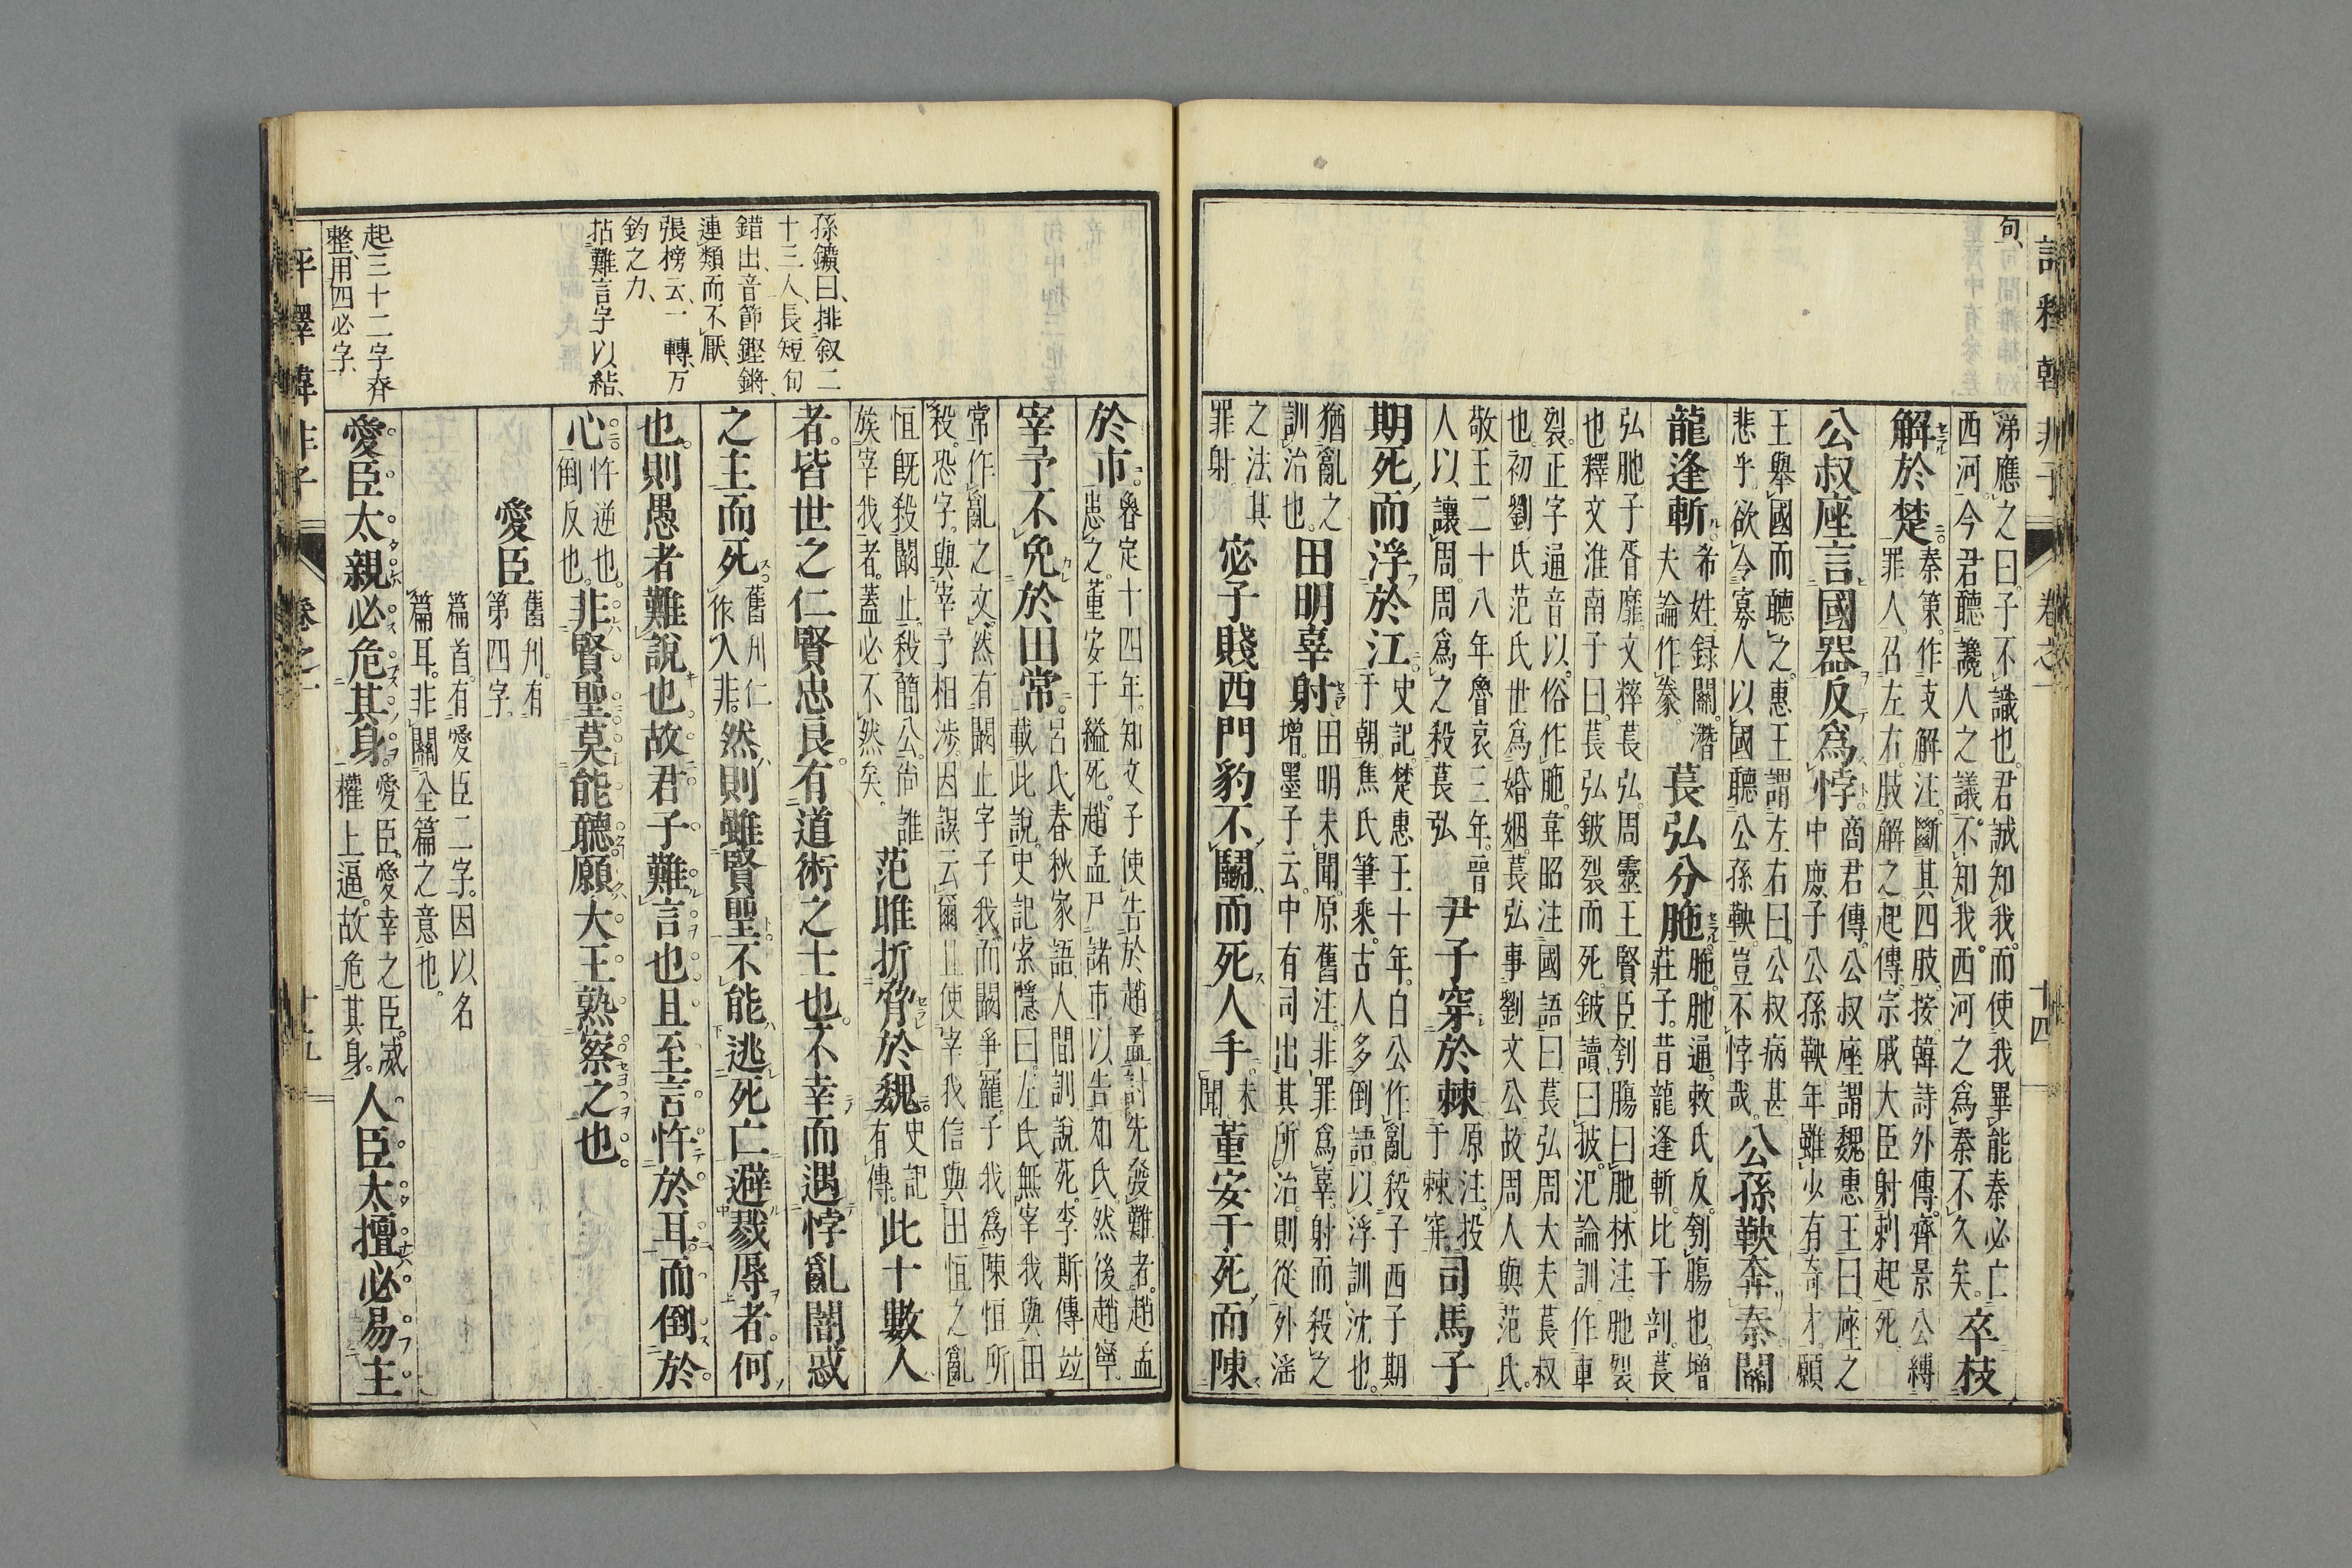 句、
涕應之曰。子不識也。君誠知我。而使我畢能秦必亡
西河今君聽讒人之議。不知我。西河之爲秦不久矣。
卒枝
解於楚。
秦策。作支解注。斷其四肢。按韓詩外傳。齊景公縛
罪人。召左右。肢解之。起傳。宗戚大臣射刺起死
公叔座言國器反爲悖。
商君傳。公叔座謂魏惠王曰。座之
中庶子公孫鞅。年雖少有奇才。願
王舉國而聽之。惠王謂左右曰。公叔病甚。
悲乎。欲令寡人以國聽公孫鞅。豈不悖哉。
公孫鞅奔秦關
龍逢斬
希姓録關。潛
夫論作豢。
萇弘分胣
胣。肔通。敕氏反。刳腸也。增
莊子。昔龍逢斬。比干剖。萇
弘肔。子胥靡。文粹萇弘。周靈王賢臣刳腸曰肔。林注。肔裂
也釋文淮南子曰。萇弘鈹裂而死。鈹讀曰披。氾論訓。作車
裂。正字通音以。俗作胣。韋昭注國語曰。萇弘周大夫萇叔
也。初劉氏范氏世爲婚姻。萇弘事劉文公。故周人與范氏。
敬王二十八年。魯哀三年。晉
人以讓周。周爲之殺萇弘
尹子穽於棘
原注。投
于棘穽。
司馬子
期死。而浮於江。
史記。楚惠王十年。白公作亂殺子西子期
于朝。焦氏筆乘。古人多倒語。以浮訓沈也。
猶亂之
訓治也。
田明辜射
田明未聞。原舊注。非罪爲辜。射而殺之
增。墨子云。中有司出其所治。則從外淫
之法其
罪射
宓子賤西門豹不鬬而死人手。
未
聞
董安于死。而陳
於市。
魯定十四年。知文子使告於趙孟討先發難者。趙孟
患之。董安于縊死。趙孟尸諸市。以告知氏。然後趙寧
宰予不免於田常。
呂氏春秋家語人間訓說死。李斯傳竝
載此說。史記索隱曰。左氏無宰我與田
常作亂之文。然有闞止字子我。而闞爭寵。子我爲陳恒所
殺。恐字。與宰予相涉。因誤云。爾且使宰我信與田恒之亂
恒既殺闞止。殺簡公。尚誰
族宰我者。蓋必不然矣。
范雎折脅於魏。
史記
有傳。
此十數人
者。皆世之仁賢忠良。有道術之士也。不幸而遇悖亂闇惑
之主而死
舊刋仁
作入非。
然則雖賢聖。不能逃死亡避戮辱者。何
也。則愚者難說也。故君子難言也。且至言忤於耳。而倒於
心。
忤逆也。
倒反也。
非賢聖莫能聽。願大王熟察之也。
愛臣
舊刋。有
第四字。
篇首。有愛臣二字。因以名
篇耳。非關全篇之意也。
愛臣太親必危其身。
愛臣。愛幸之臣。威
權上逼。故危其身。
人臣太擅必易主
孫鑛曰、排叙二
十三人、長短句
錯出、音節鏗鏘、
連類而不厭、
張榜云、一轉、万
鈞之力、
拈難言字以結、
起三十二字齊
整、用四必字、
評釋韓非子
卷之一
十四